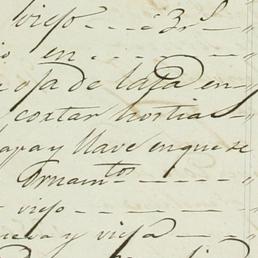 viejo - - - - " 3 r.s
en - - - - -
oja de lata en
cortar hostia
tapa y llave en que se
Ornam.tos - - - - - "
viejo - - - - - "
nueva y vieja - - - - "